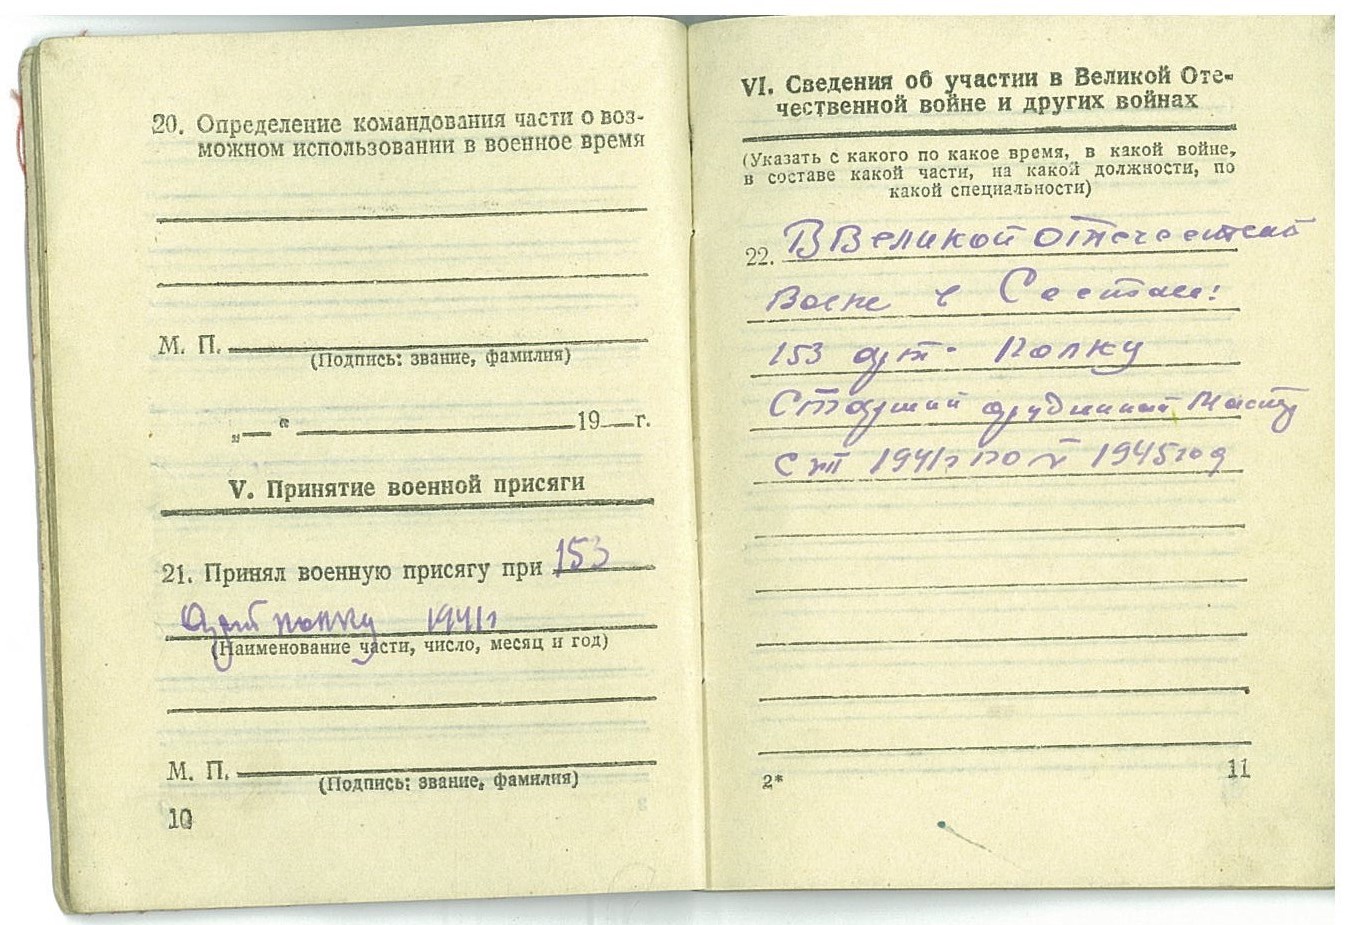 20. Определение командования части о воз-
можном использовании в военное время
М. П.
(Подпись: звание, фамилия)
„ “ 19 г.
V. Принятие военной присяги
21. Принял военную присягу при 153
полку 1941г
(Наименование части, число, месяц и год)
М. П.
(Подпись: звание, фамилия)
10
VI. Сведения об участии в Великой Оте-
чественной войне и других войнах
(Указать с какого по какое время, в какой войне,
в составе какой части, на какой должности, по
какой специальности)
22. В Великой отечествен
Войне в Составе:
153 арт. полку
Старший орудийный Мастер
С 1941г по V 1945 год
2*
11